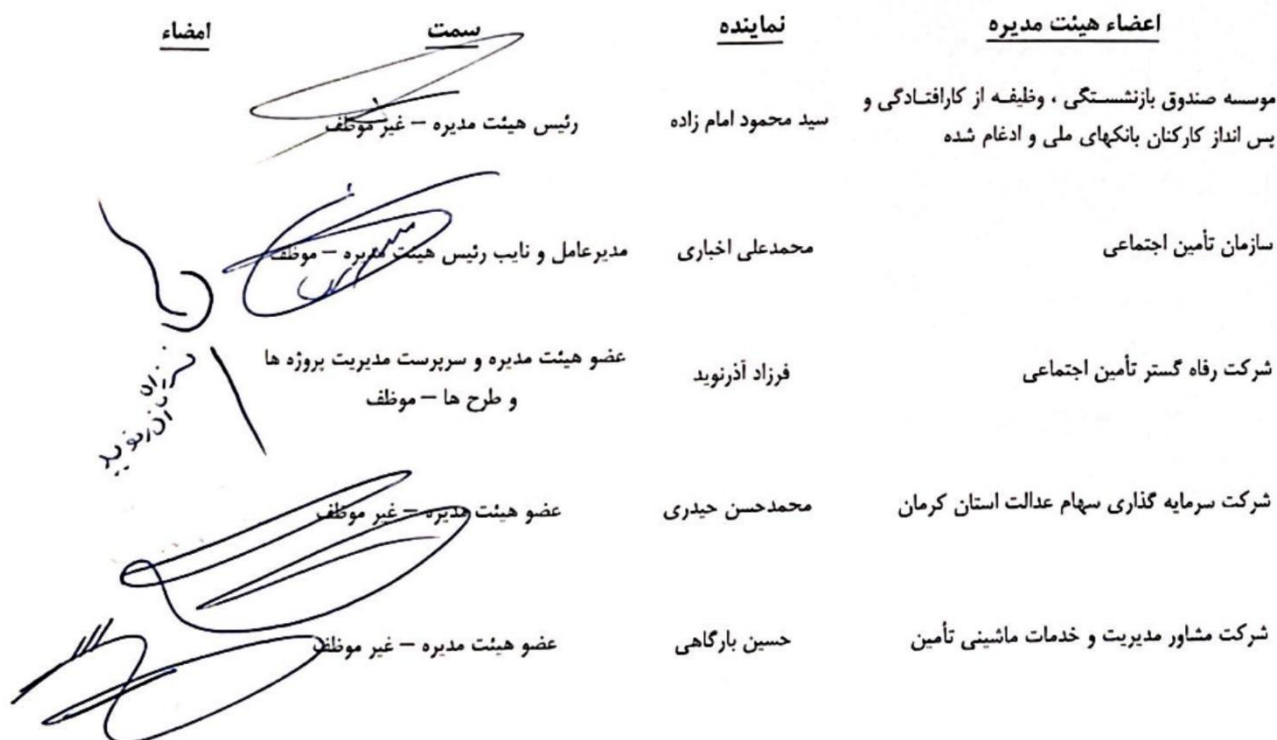 اعضاء هیئت مدیره نماینده سمت امضاء
موسسه صندوق بازنشستگی ، وظیفه از کارافتادگی و
پس انداز کارکنان بانکهای ملی و ادغام شده سید محمود امام زاده رئیس هیئت مدیره – غیر موظف
سازمان تأمین اجتماعی محمدعلی اخباری مدیرعامل و نایب رئیس هیئت مدیره – موظف
شرکت رفاه گستر تأمین اجتماعی فرزاد آذرنوید عضو هیئت مدیره و سرپرست مدیریت پروژه ها
و طرح ها – موظف
شرکت سرمایه گذاری سهام عدالت استان کرمان محمدحسن حیدری عضو هیئت مدیره – غیر موظف
شرکت مشاور مدیریت و خدمات ماشینی تأمین حسین بارگاهی عضو هیئت مدیره – غیر موظف